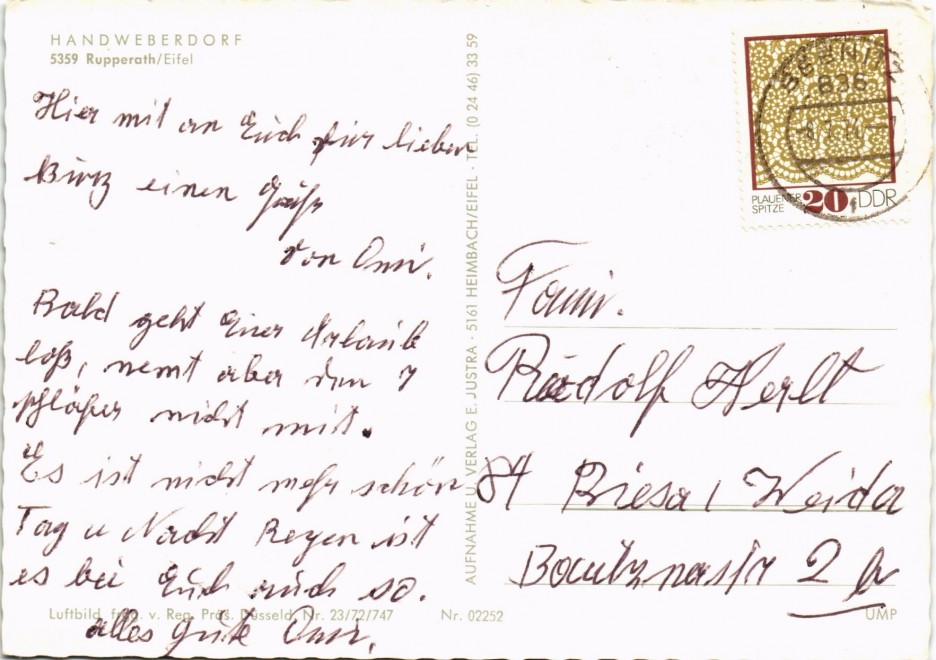 HANDWEBERDORF
5359 Rupperath/Eifel
Hier mit an Euch für lieben
einen
von Omi.
Bald geht Euer Urlaub
loß, nemt aber den 7
schläfer nicht mit.
Es ist nicht mehr schön
Tag u Nacht Regen ist
es bei Euch auch so.
alles gute Omi.
Luftbild freig. v. Reg. Präs. Düsseld. Nr. 23/72/747
Nr. 02252
AUFNAHME U. VERLAG E. JUSTRA · 5161 HEIMBACH/EIFEL · TEL. (0 24 46) 33 59
SEBNITZ
836
PLAUENER
SPITZE
20 DDR
Fami.
Rudolf Herlt
84 Riesa / Weida
2 b
UMP